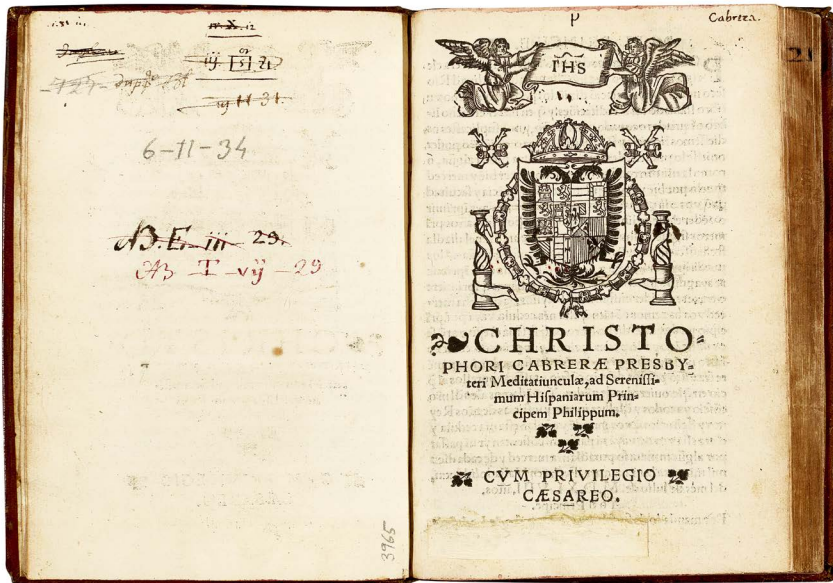 iij 21
iij 11 31
6-11-34
AB. E. iii 29.
AB T - vij - 29
3965
P
Cabrera.
21
IHS
CHRISTO=
PHORI CABRERÆ PRESBY=
teri Meditatiunculæ, ad Sereniſſi=
mum Hiſpaniarum Prin=
cipem Philippum.
CVM PRIVILEGIO
CÆSAREO.